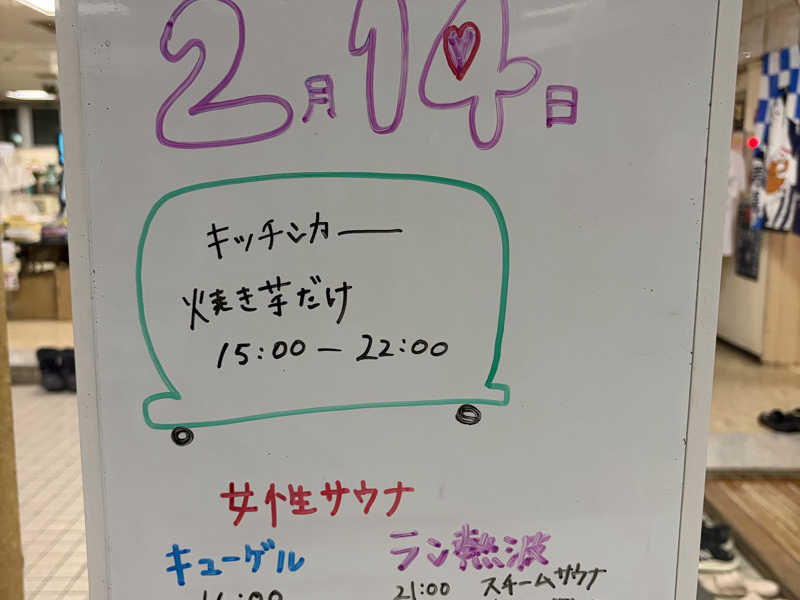 2月14日
キッチンカー
焼き芋だけ
15:00 ー 22:00
女性サウナ
キューゲル ラン熱波
21:00 スチームサウナ